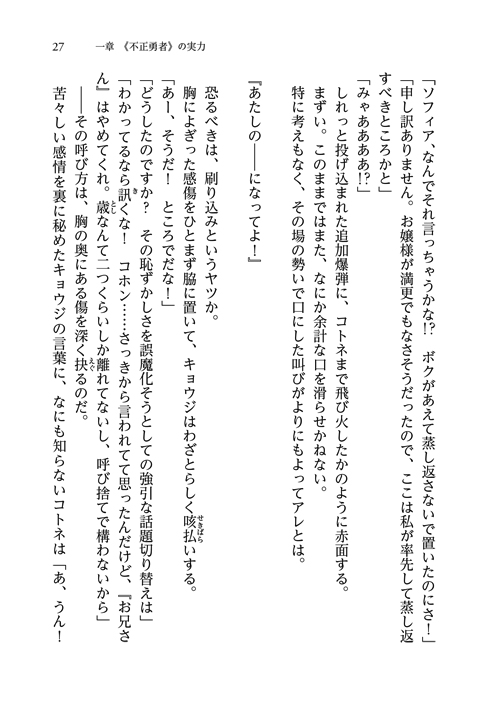 27　一章　《不正勇者》の実力
「ソフィア、なんでそれ言っちゃうかな!?　ボクがあえて蒸し返さないで置いたのにさ！」
「申し訳ありません。お嬢様が満更でもなさそうだったので、ここは私が率先して蒸し返
すべきところかと」
「みゃああああ!?」
しれっと投げ込まれた追加爆弾に、コトネまで飛び火したかのように赤面する。
まずい。このままではまた、なにか余計な口を滑らせかねない。
特に考えもなく、その場の勢いで口にした叫びがよりにもよってアレとは。
『あたしの――になってよ！』
恐るべきは、刷り込みというヤツか。
胸によぎった感傷をひとまず脇に置いて、キョウジはわざとらしく咳払いする。
「あー、そうだ！　ところでだな！」
「どうしたのですか？　その恥ずかしさを誤魔化そうとしての強引な話題切り替えは」
「わかってるなら訊くな！　コホン……さっきから言われてて思ったんだけど、『お兄さ
ん』はやめてくれ。歳なんて二つくらいしか離れてないし、呼び捨てで構わないから」
――その呼び方は、胸の奥にある傷を深く抉るのだ。
苦々しい感情を裏に秘めたキョウジの言葉に、なにも知らないコトネは「あ、うん！